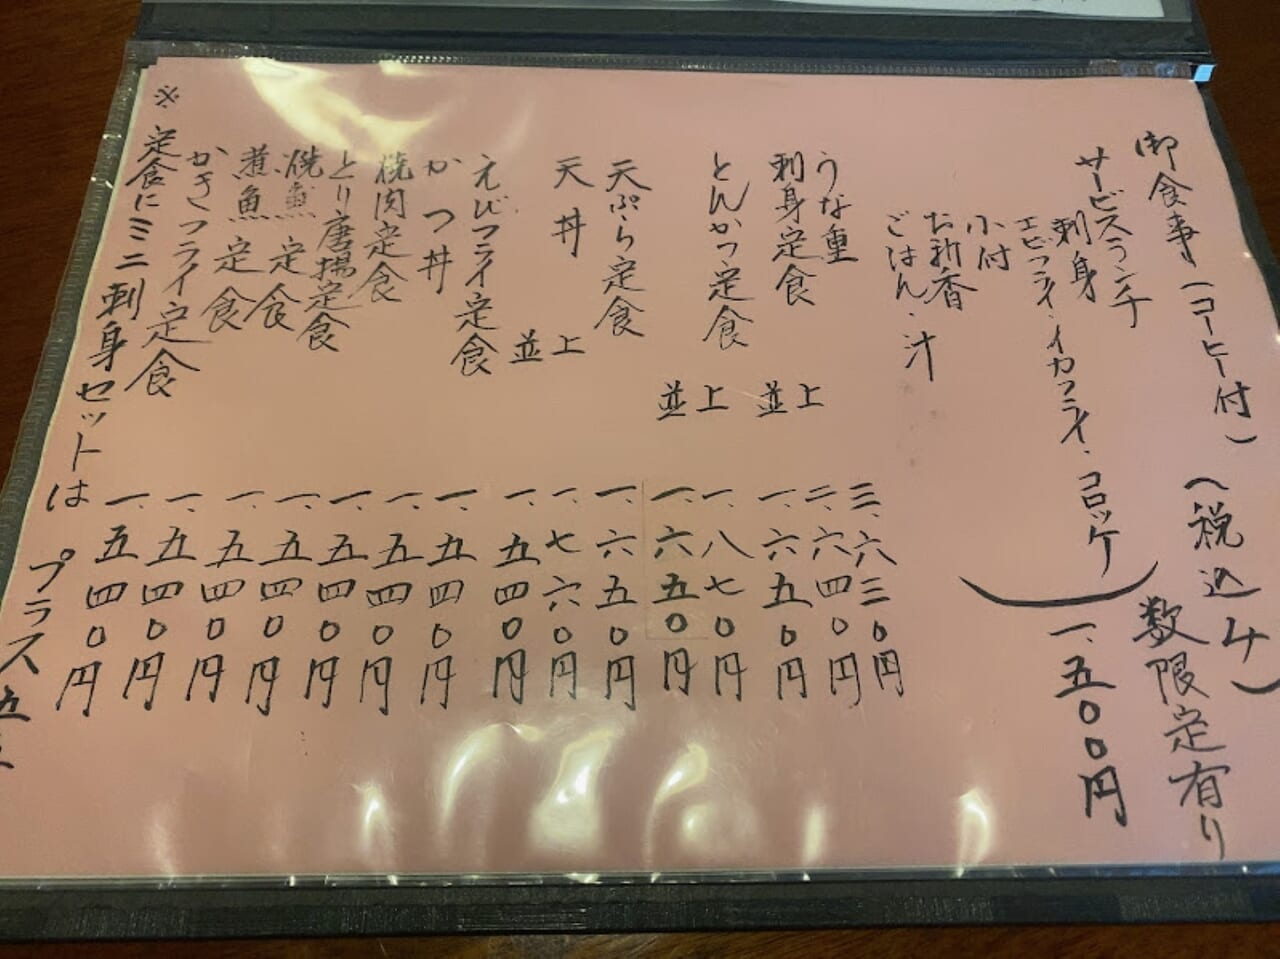 御食事（コーヒー付）（税込み）
サービスランチ 数限定有り
刺身
エビフライ・イカフライ・コロッケ
小付
お新香
ごはん・汁
一、五００円
うな重 三、六三０円
刺身定食 上 二、六四０円
並 一、六五０円
とんかつ定食 上 一、八七０円
並 一、六五０円
天ぷら定食 一、六五０円
天丼 上 一、七六０円
並 一、五四０円
えびフライ定食 一、五四０円
かつ丼 一、五四０円
焼肉定食 一、五四０円
とり唐揚定食 一、五四０円
焼魚定食 一、五四０円
煮魚定食 一、五四０円
かきフライ定食 一、五四０円
※定食にミニ刺身セットは プラス五